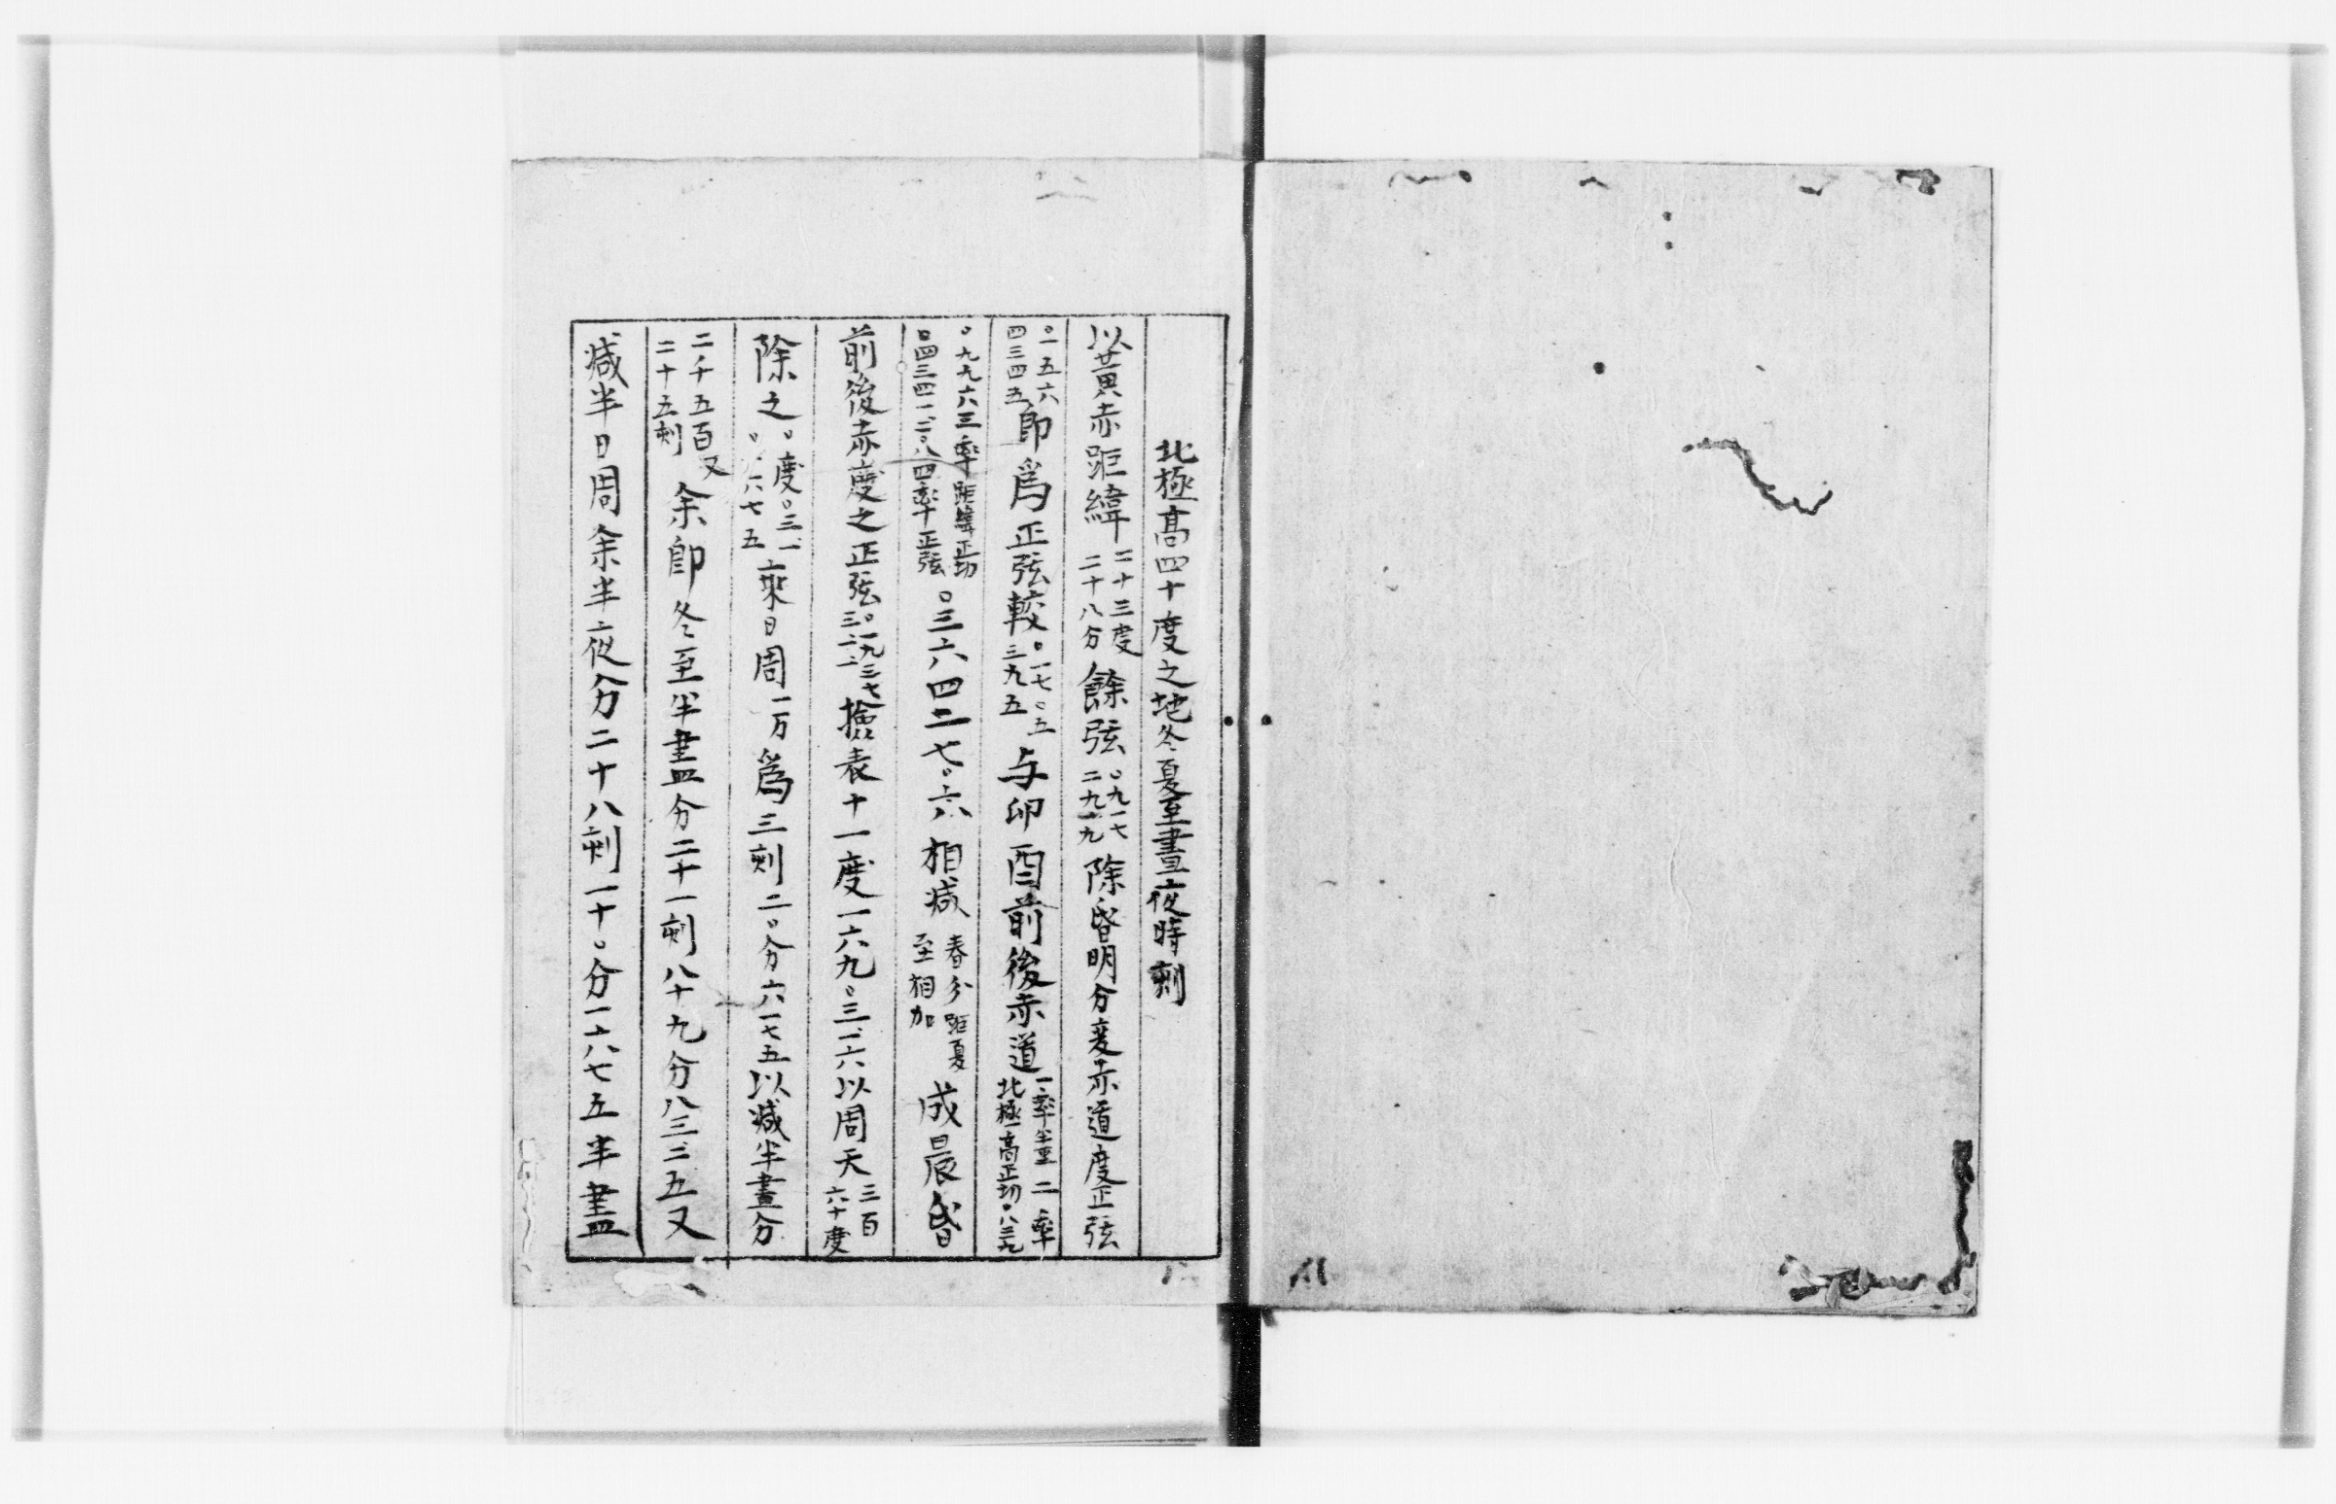 北極高四十度之地冬夏至晝夜時刻
以黃赤距緯二十三度二十八分餘弦〇九一七二九一九除昏明分変赤道度正弦
〇一五六四三四五即爲正弦較〇一七〇五三九五与卯酉前後赤道一率半全二率北極高正切〇八三九
〇九九六三率距緯正切〇四三四一二〇八四率正弦〇三六四二七〇六相减春分距夏至相加成晨昏
前後赤度之正弦〇一九三七三二一撿表十一度一六九〇三一六以周天三百六十度
除之〇度〇三一六七五乘日周一万爲三刻一二〇分六一七五以减半晝分
二千五百又二十五刻余即冬至半晝分二十一刻八十九分八三二五又
减半日周余半夜分二十八刻一十〇分一六八七五半晝